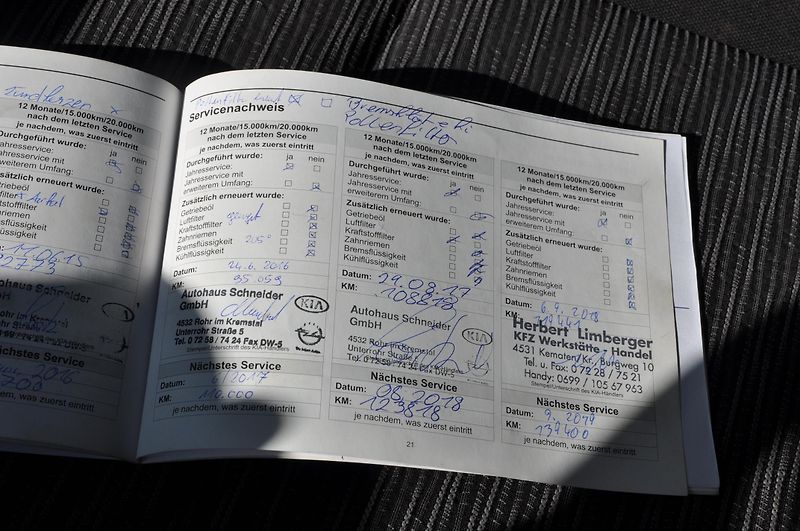 Tundkerzen x
12 Monate/15.000km/20.000km
nach dem letzten Service
je nachdem, was zuerst eintritt
Durchgeführt wurde: ja nein
Jahresservice:
Jahresservice mit
weiterem Umfang:
Zusätzlich erneuert wurde:
Getriebeöl
Kraftstofffilter
Zahnriemen
Bremsflüssigkeit
Kühlflüssigkeit
Autohaus Schneider
GmbH
4532 Rohr im Kremstal
Nächstes Service
je nachdem, was zuerst eintritt
Servicenachweis
12 Monate/15.000km/20.000km
nach dem letzten Service
je nachdem, was zuerst eintritt
Durchgeführt wurde: ja nein
Jahresservice:
Jahresservice mit
erweitertem Umfang:
Zusätzlich erneuert wurde:
Getriebeöl
Luftfilter
Kraftstofffilter
Zahnriemen
Bremsflüssigkeit 205°
Kühlflüssigkeit
Datum: 24.6.2016
KM: 95.059
Autohaus Schneider
GmbH
KIA
4532 Rohr im Kremstal
Unterrohr Straße 5
Tel. 0 72 58 / 74 24 Fax DW-5
Stempel/Unterschrift des KIA-Händlers
Nächstes Service
Datum: 6/2017
KM: 110.000
je nachdem, was zuerst eintritt
Pollenfilter
12 Monate/15.000km/20.000km
nach dem letzten Service
je nachdem, was zuerst eintritt
Durchgeführt wurde: ja nein
Jahresservice:
Jahresservice mit
erweitertem Umfang:
Zusätzlich erneuert wurde:
Getriebeöl
Luftfilter
Kraftstofffilter
Zahnriemen
Bremsflüssigkeit
Kühlflüssigkeit
Datum: 21.08.17
KM: 108818
Autohaus Schneider
GmbH
KIA
4532 Rohr im Kremstal
Unterrohr Straße
Tel. 0 72 58 / 74 24 Fax DW-5
Nächstes Service
Datum: 08.2018
KM: 123818
je nachdem, was zuerst eintritt
21
12 Monate/15.000km/20.000km
nach dem letzten Service
je nachdem, was zuerst eintritt
Durchgeführt wurde: ja nein
Jahresservice:
Jahresservice mit
erweitertem Umfang:
Zusätzlich erneuert wurde:
Getriebeöl
Luftfilter
Kraftstofffilter
Zahnriemen
Bremsflüssigkeit
Kühlflüssigkeit
Datum: 6.9.2018
KM: 119441
Herbert Limberger
KFZ Werkstätte - Handel
4531 Kematen/Kr., Burgweg 10
Tel. u. Fax: 0 72 28 / 75 21
Handy: 0699 / 105 67 963
Stempel/Unterschrift des KIA-Händlers
Nächstes Service
Datum: 9.2019
KM: 139400
je nachdem, was zuerst eintritt